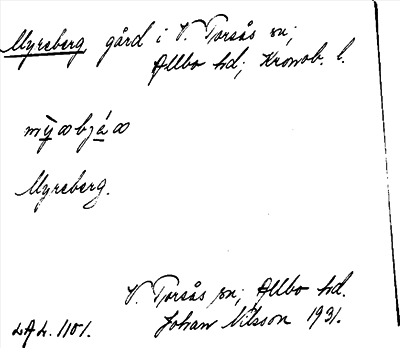 Myreberg gård i V. Torsås sn;
Allbo hd; Kronob. l.
Myreberg.
V. Torsås sn; Allbo hd.
LAL. 1101. Johan Nilsson 1931.